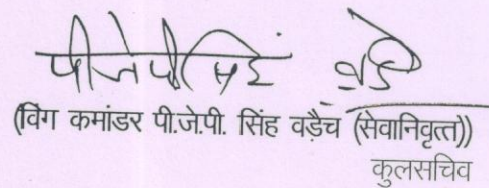 पीजेपीसिंह वडै
(विंग कमांडर पी.जे.पी. सिंह वड़ैच (सेवानिवृत्त))
कुलसचिव